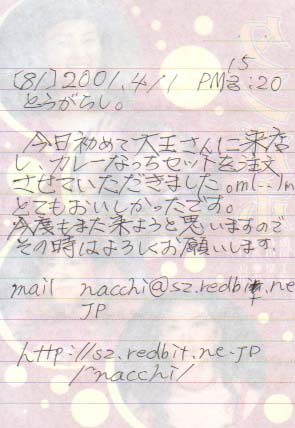 [81] 2001.4/1 PM 15:20
とうがらし。
今日初めて大王さんに来店
し、カレーなっちセットを注文
させていただきました。m(_ _)m
とてもおいしかったです。
今度もまた来ようと思いますので
その時はよろしくお願いします。
mail nacchi@sz.redbit.ne.
JP
http://sz.redbit.ne.JP
/~nacchi/